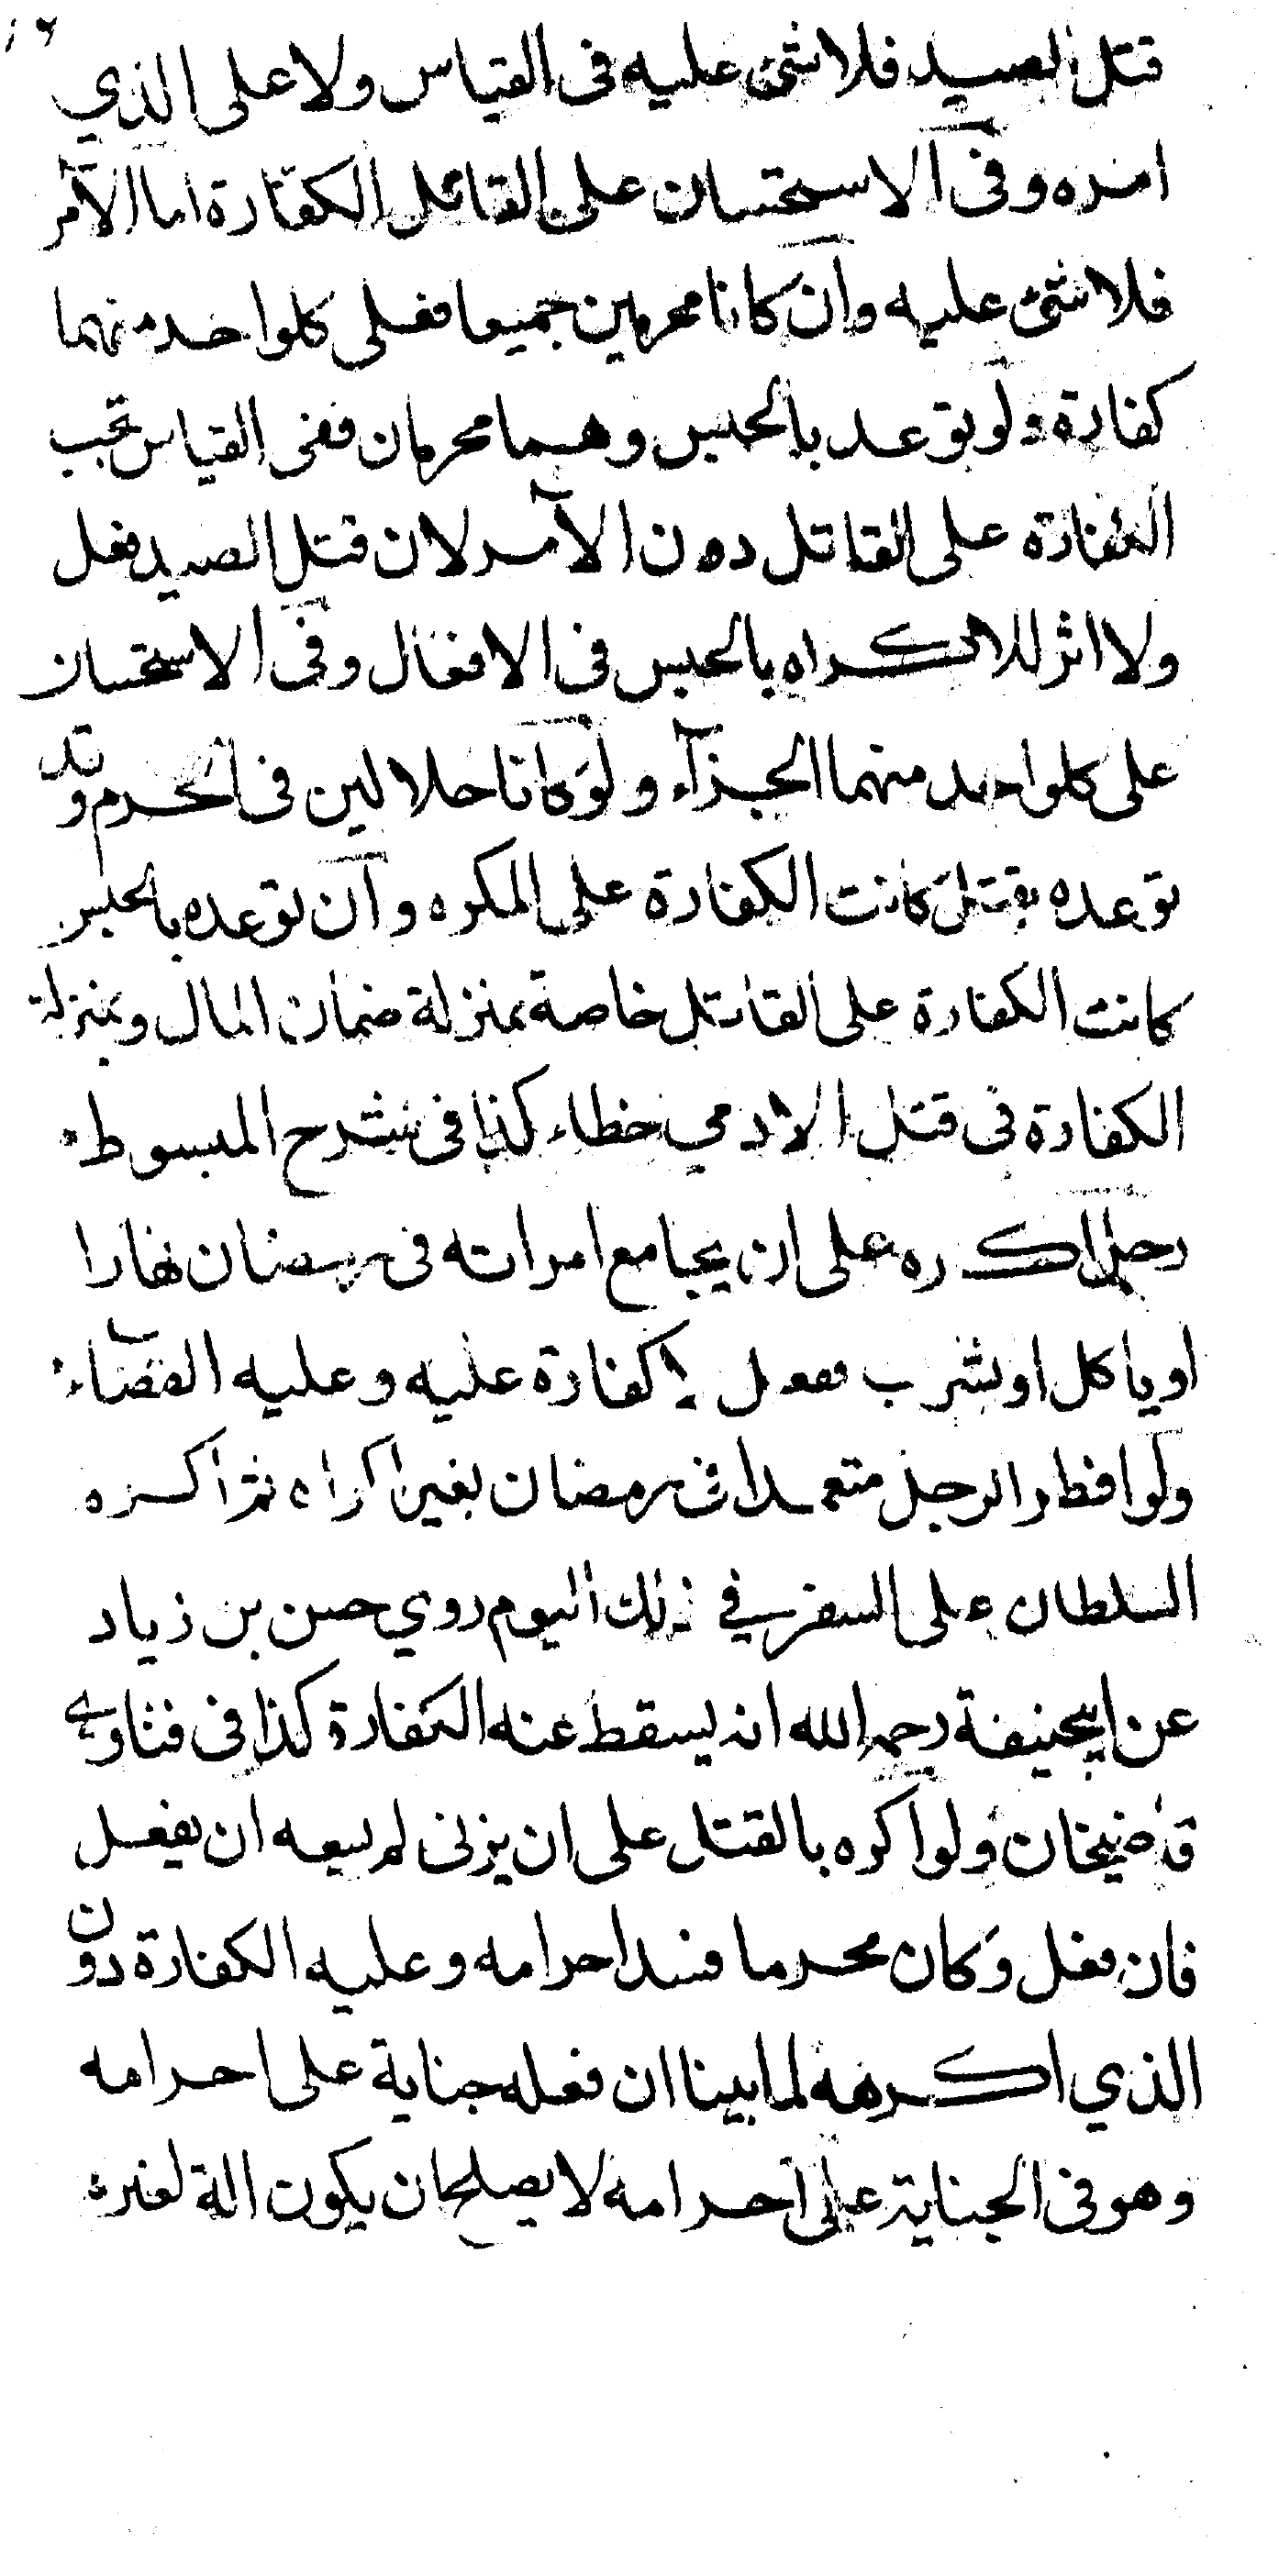 قتل الصيد فلا شئ عليه فى القياس ولا على الذي
امره وفى الاستحسان على القاتل الكفارة اما الآمر
فلا شئ عليه وان كانا محرمين جميعا فعلى كلواحد منهما
كفارة ولو توعد بالحبس وهما محرمان ففى القياس تجب
الكفارة على القاتل دون الآمر لان قتل الصيد فعل
ولا اثر للاكراه بالحبس فى الافعال وفى الاستحسان
على كلواحد منهما الجزآء ولو كانا حلالين فى الحرم وقد
توعده بقتل كانت الكفارة على المكره وان توعده بالحبس
كانت الكفارة على القاتل خاصة بمنزلة ضمان المال وبمنزلة
الكفارة فى قتل الادمي خطاء كذا فى شرح المبسوط
رجل اكره على ان يجامع امراته فى رمضان نهارا
او ياكل او يشرب ففعل لا كفارة عليه وعليه القضاء
ولو افطر الرجل متعمدا فى رمضان بغير اكراه ثم اكره
السلطان على السفر في ذلك اليوم روي حسن بن زياد
عن ابيحنيفة رحمه الله انه يسقط عنه الكفارة كذا فى فتاوي
قاضيخان ولو اكره بالقتل على ان يزنى لم يسعه ان يفعل
فان فعل وكان محرما فسد احرامه وعليه الكفارة دون
الذي اكرهه لما بينا ان فعله جناية على احرامه
وهو فى الجناية على احرامه لا يصلح ان يكون الة لغيره